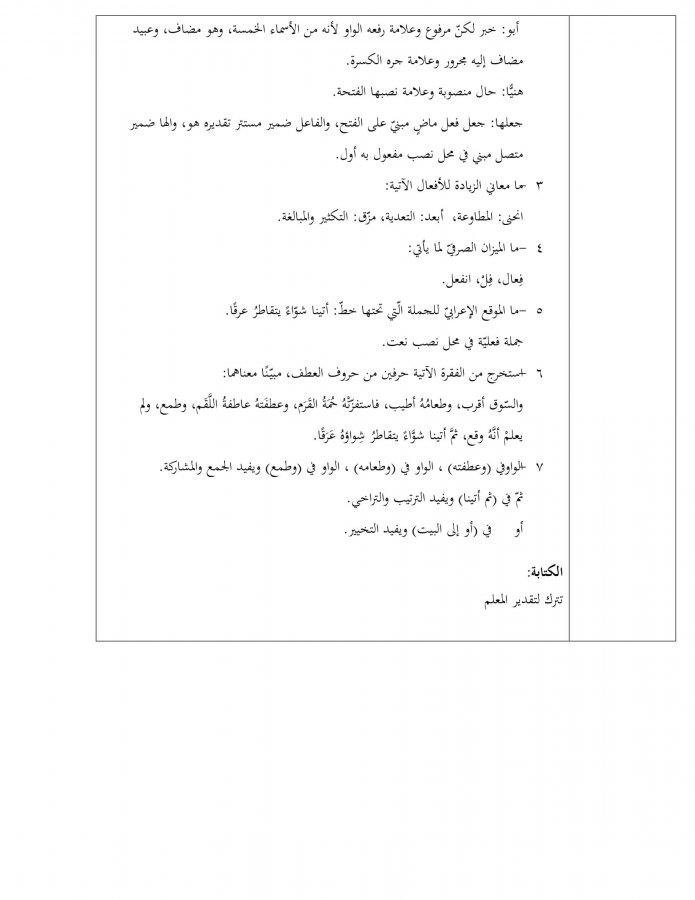 أبو: خبر لكنّ مرفوع وعلامة رفعه الواو لأنه من الأسماء الخمسة، وهو مضاف، وعبيد
مضاف إليه مجرور وعلامة جره الكسرة.
هنيًّا: حال منصوبة وعلامة نصبها الفتحة.
جعلها: جعل فعل ماضٍ مبنيّ على الفتح، والفاعل ضمير مستتر تقديره هو، والها ضمير
متصل مبني في محل نصب مفعول به أول.
٣ -ما معاني الزيادة للأفعال الآتية:
انحنى: المطاوعة، أبعد: التعدية، مزّق: التكثير والمبالغة.
٤ -ما الميزان الصرفيّ لما يأتي:
فِعال، فِلُ، انفعل.
٥ -ما الموقع الإعرابيّ للجملة الّتي تحتها خطّ: أتينا شوّاءً يتقاطرُ عرقًا.
جملة فعليّة في محل نصب نعت.
٦ -استخرج من الفقرة الآتية حرفين من حروف العطف، مبيّنًا معناهما:
والسّوق أقرب، وطعامُهُ أطيب، فاستفزّتْهُ حُمَةُ القَرَم، وعطفَتهُ عاطفةُ اللَّقَم، وطمع، ولم
يعلمْ أنَّهُ وقع، ثمَّ أتينا شوَّاءً يتقاطرُ شِواؤهُ عَرَقًا.
٧ -الواوفي (وعطفته) ، الواو في (وطعامه) ، الواو في (وطمع) ويفيد الجمع والمشاركة.
ثمّ في (ثم أتينا) ويفيد الترتيب والتراخي.
أو في (أو إلى البيت) ويفيد التخيير.
الكتابة:
تترك لتقدير المعلم